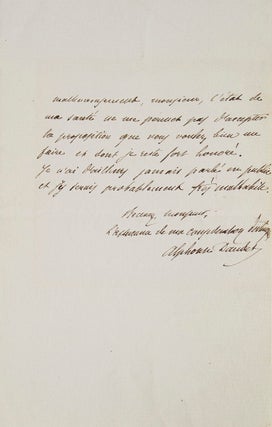 malheureusement, monsieur, l'état de
ma santé ne me permet pas d'accepter
la proposition que vous voulez bien me
faire et dont je reste fort honoré.
Je n'ai d'ailleurs jamais parlé en public
et j'y serais probablement très malhabile.
Recevez, monsieur,
l'expression de ma considération
Alphonse Daudet